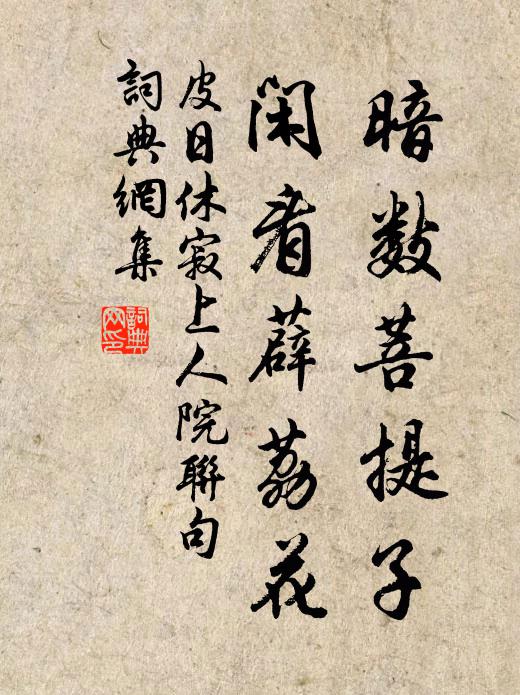 暗數菩提子
閑看薜荔花
皮日休寂上人院聯句
詞典網集
詞典
网印